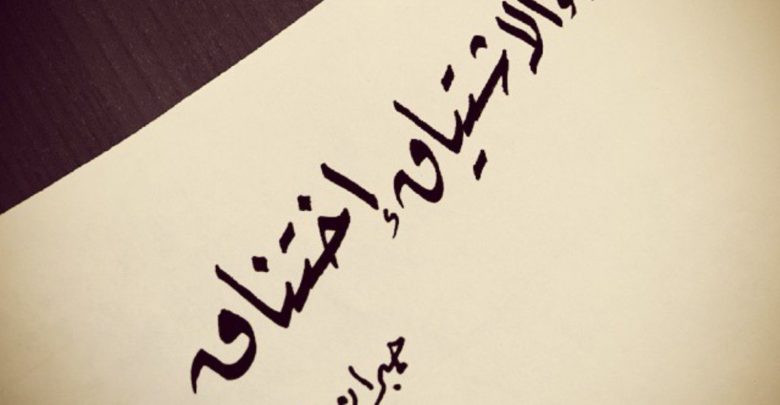 والاشتياق إختناق
جبران